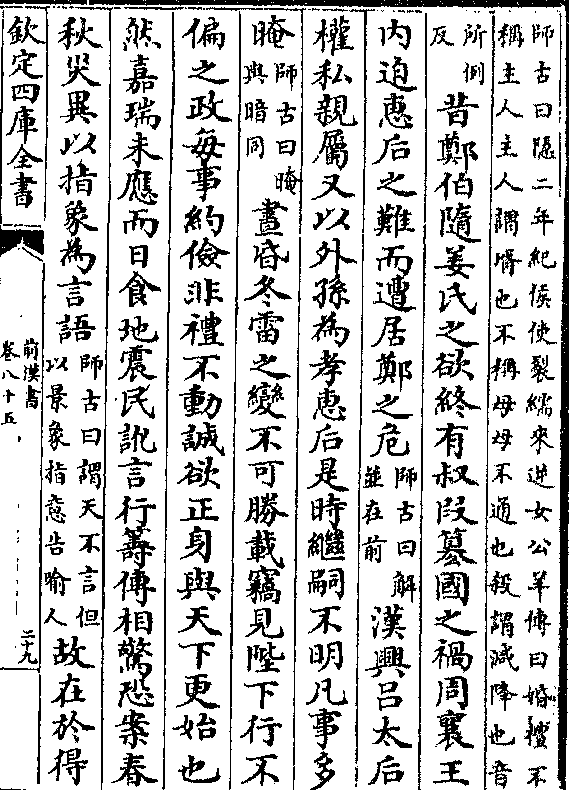 師古曰隱二年紀侯使裂繻來逆女公羊傳曰婚禮不
稱主人主人謂壻也不稱母母不通也殺謂減降也音
所例
反
昔鄭伯隨姜氏之欲終有叔段簒國之禍周襄王
内迫惠后之難而遭居鄭之危
師古曰解
並在前
漢興吕太后
權私親屬又以外孫為孝惠后是時繼嗣不明凡事多
晻
師古曰晻
與暗同
晝昏冬雷之變不可勝載竊見陛下行不
偏之政每事約儉非禮不動誠欲正身與天下更始也
然嘉瑞未應而日食地震民訛言行籌傳相驚恐案春
秋災異以指象為言語
師古曰謂天不言但
以景象指意告喻人
故在於得
欽定四庫全書
前漢書
卷八十五
二十九